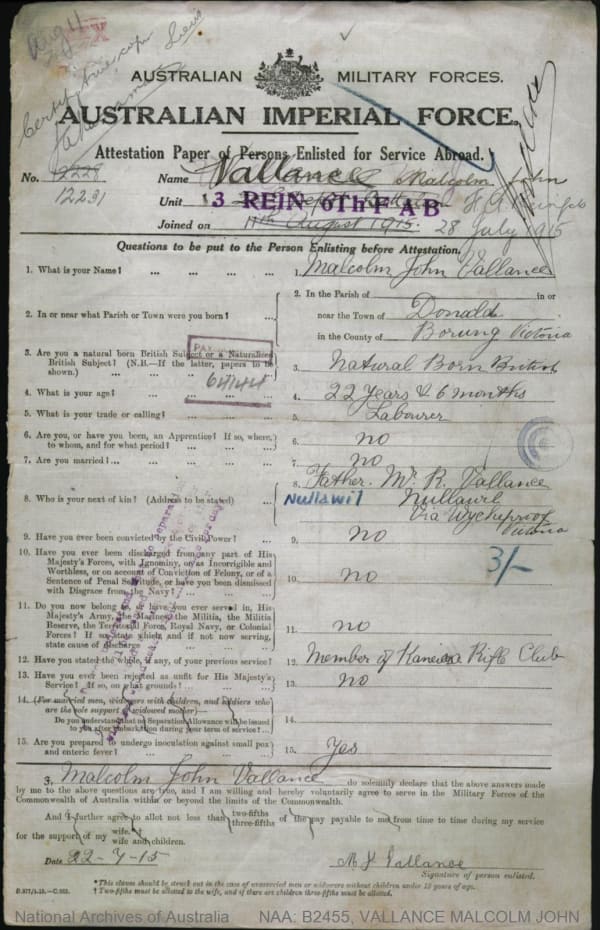 Aug 11
Certified true copy
AUSTRALIAN MILITARY FORCES.
AUSTRALIAN IMPERIAL FORCE.
Attestation Paper of Persons Enlisted for Service Abroad.
No. 12228 Name Vallance Malcolm John
12231 Unit 3 REIN 6Th F A B
Joined on 11th August 1915. 28 July 1915
Questions to be put to the Person Enlisting before Attestation.
1. What is your Name? ... ... ... ... 1. Malcolm John Vallance
2. In or near what Parish or Town were you born? ... 2. In the Parish of in or
near the Town of Donald
in the County of Borung Victoria
3. Are you a natural born British Subject or a Naturalised
British Subject? (N.B.—If the latter, papers to be
shown.) ... ... 3. Natural Born British
PAY
64144
4. What is your age? ... ... ... ... 4. 22 Years & 6 months
5. What is your trade or calling? ... ... ... 5. Labourer
6. Are you, or have you been, an Apprentice? If so, where,
to whom, and for what period? ... ... ... 6. no
7. Are you married?... ... ... ... ... 7. no
8. Who is your next of kin? (Address to be stated) ... 8. Father. Mr R. Vallance
Nullawil Nullawil
Via Wycheproof
Victoria
9. Have you ever been convicted by the Civil Power? ... 9. No
10. Have you ever been discharged from any part of His
Majesty's Forces, with Ignominy, or as Incorrigible and
Worthless, or on account of Conviction of Felony, or of a
Sentence of Penal Servitude, or have you been dismissed
with Disgrace from the Navy? ... ... 10. no
3/-
11. Do you now belong to, or have you ever served in, His
Majesty's Army, the Marines, the Militia, the Militia
Reserve, the Territorial Force, Royal Navy, or Colonial
Forces? If so, state which, and if not now serving,
state cause of discharge 11. no
12. Have you stated the whole, if any, of your previous service? 12. Member of Kaneira Rifle Club
13. Have you ever been rejected as unfit for His Majesty's
Service? If so, on what grounds? ... ... 13. no
14. (For married men, widowers with children, and soldiers who
are the sole support of widowed mother)—
Do you understand that no Separation Allowance will be issued
to you after embarkation during your term of service?...
15. Are you prepared to undergo inoculation against small pox
and enteric fever? ... ... ... ... 15. Yes
I, Malcolm John Vallance do solemnly declare that the above answers made
by me to the above questions are true, and I am willing and hereby voluntarily agree to serve in the Military Forces of the
Commonwealth of Australia within or beyond the limits of the Commonwealth.
And I further agree to allot not less than two-fifths three-fifths of the pay payable to me from time to time during my service
for the support of my wife.† wife and children.
Date 22-7-15 M J Vallance
Signature of person enlisted.
* This clause should be struck out in the case of unmarried men or widowers without children under 18 years of age.
† Two-fifths must be allotted to the wife, and if there are children three-fifths must be allotted.
National Archives of Australia NAA: B2455, VALLANCE MALCOLM JOHN